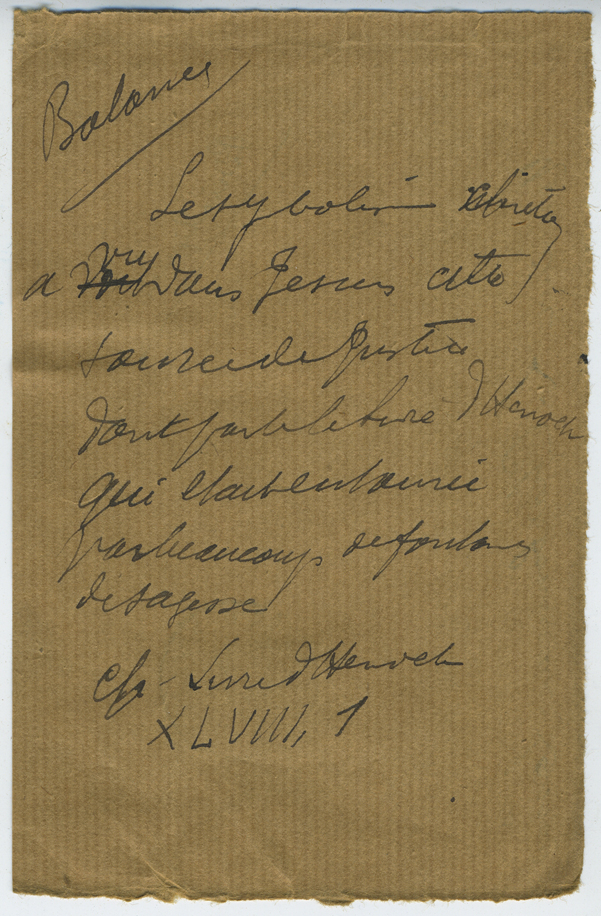 Balance
Le symbolisme chrétien
a vu dans Jesus cette
source de Justice
dont parle le livre d'Henoch
qui etait entourée
par beaucoup de fontaines
de sagesse
cfr - Livre d'Henoch
XLVIII, 1